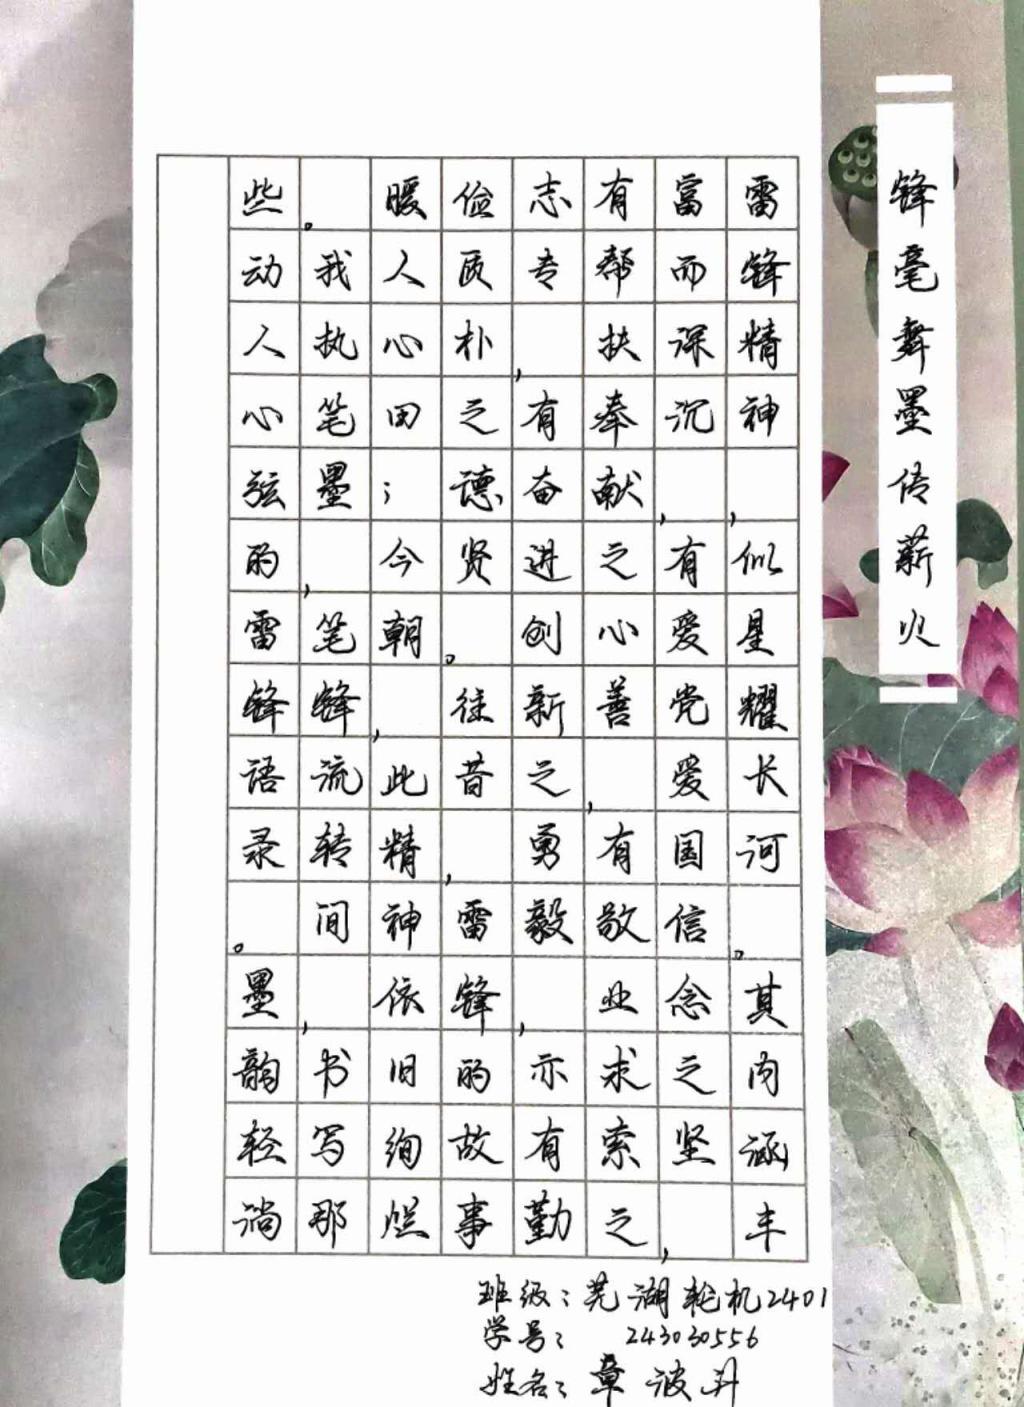 锋毫舞墨传薪火
雷锋精神，似星耀长河。其内涵丰
富而深沉，有爱党爱国信念之坚，
有帮扶奉献之心善，有敬业求索之
志专，有奋进创新之勇毅，亦有勤
俭质朴之德贤。往昔，雷锋的故事
暖人心田；今朝，此精神依旧绚烂
。我执笔墨，笔锋流转间，书写那
些动人心弦的雷锋语录。墨韵轻淌
班级：芜湖轮机2401
学号： 243030556
姓名：章波